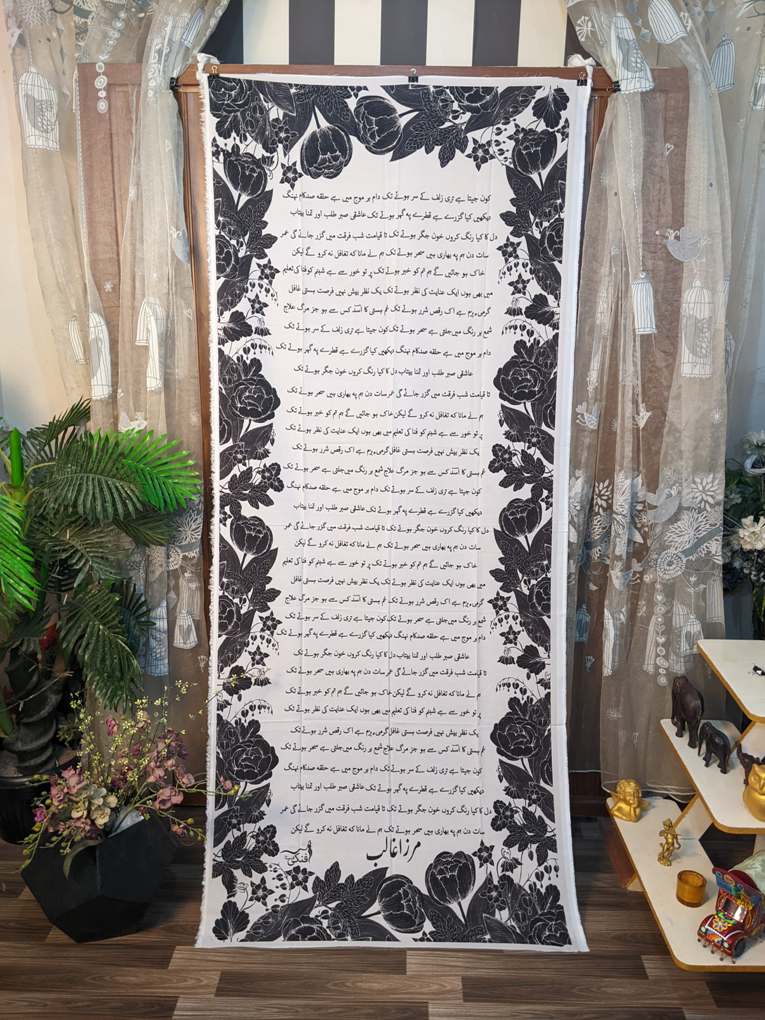 کون جیتا ہے تری زلف کے سر ہونے تک دام ہر موج میں ہے حلقہ صدکام نہنگ
دیکھیں کیا گزرے ہے قطرے پہ گہر ہونے تک عاشقی صبر طلب اور تمنا بیتاب
دل کا کیا رنگ کروں خون جگر ہونے تک تا قیامت شب فرقت میں گزر جائے گی عمر
سات دن ہم پہ بھاری ہیں سحر ہونے تک ہم نے مانا کہ تغافل نہ کرو گے لیکن
خاک ہو جائیں گے ہم تم کو خبر ہونے تک پر تو خور سے ہے شبنم کو فنا کی تعلیم
میں بھی ہوں ایک عنایت کی نظر ہونے تک یک نظر بیش نہیں فرصت ہستی غافل
گرمیء بزم ہے اک رقص شرر ہونے تک غم ہستی کا اسد کس سے ہو جز مرگ علاج
شمع ہر رنگ میں جلتی ہے سحر ہونے تک کون جیتا ہے تری زلف کے سر ہونے تک
دام ہر موج میں ہے حلقہ صدکام نہنگ دیکھیں کیا گزرے ہے قطرے پہ گہر ہونے تک
عاشقی صبر طلب اور تمنا بیتاب دل کا کیا رنگ کروں خون جگر ہونے تک
تا قیامت شب فرقت میں گزر جائے گی عمر سات دن ہم پہ بھاری ہیں سحر ہونے تک
ہم نے مانا کہ تغافل نہ کرو گے لیکن خاک ہو جائیں گے ہم تم کو خبر ہونے تک
پر تو خور سے ہے شبنم کو فنا کی تعلیم میں بھی ہوں ایک عنایت کی نظر ہونے تک
یک نظر بیش نہیں فرصت ہستی غافل گرمیء بزم ہے اک رقص شرر ہونے تک
غم ہستی کا اسد کس سے ہو جز مرگ علاج شمع ہر رنگ میں جلتی ہے سحر ہونے تک
کون جیتا ہے تری زلف کے سر ہونے تک دام ہر موج میں ہے حلقہ صدکام نہنگ
دیکھیں کیا گزرے ہے قطرے پہ گہر ہونے تک عاشقی صبر طلب اور تمنا بیتاب
دل کا کیا رنگ کروں خون جگر ہونے تک تا قیامت شب فرقت میں گزر جائے گی عمر
سات دن ہم پہ بھاری ہیں سحر ہونے تک ہم نے مانا کہ تغافل نہ کرو گے لیکن
خاک ہو جائیں گے ہم تم کو خبر ہونے تک پر تو خور سے ہے شبنم کو فنا کی تعلیم
میں بھی ہوں ایک عنایت کی نظر ہونے تک یک نظر بیش نہیں فرصت ہستی غافل
گرمیء بزم ہے اک رقص شرر ہونے تک غم ہستی کا اسد کس سے ہو جز مرگ علاج
شمع ہر رنگ میں جلتی ہے سحر ہونے تک کون جیتا ہے تری زلف کے سر ہونے تک
دام ہر موج میں ہے حلقہ صدکام نہنگ دیکھیں کیا گزرے ہے قطرے پہ گہر ہونے تک
عاشقی صبر طلب اور تمنا بیتاب دل کا کیا رنگ کروں خون جگر ہونے تک
تا قیامت شب فرقت میں گزر جائے گی عمر سات دن ہم پہ بھاری ہیں سحر ہونے تک
ہم نے مانا کہ تغافل نہ کرو گے لیکن خاک ہو جائیں گے ہم تم کو خبر ہونے تک
پر تو خور سے ہے شبنم کو فنا کی تعلیم میں بھی ہوں ایک عنایت کی نظر ہونے تک
یک نظر بیش نہیں فرصت ہستی غافل گرمیء بزم ہے اک رقص شرر ہونے تک
غم ہستی کا اسد کس سے ہو جز مرگ علاج شمع ہر رنگ میں جلتی ہے سحر ہونے تک
کون جیتا ہے تری زلف کے سر ہونے تک دام ہر موج میں ہے حلقہ صدکام نہنگ
دیکھیں کیا گزرے ہے قطرے پہ گہر ہونے تک عاشقی صبر طلب اور تمنا بیتاب
دل کا کیا رنگ کروں خون جگر ہونے تک تا قیامت شب فرقت میں گزر جائے گی عمر
سات دن ہم پہ بھاری ہیں سحر ہونے تک ہم نے مانا کہ تغافل نہ کرو گے لیکن
مرزا غالب